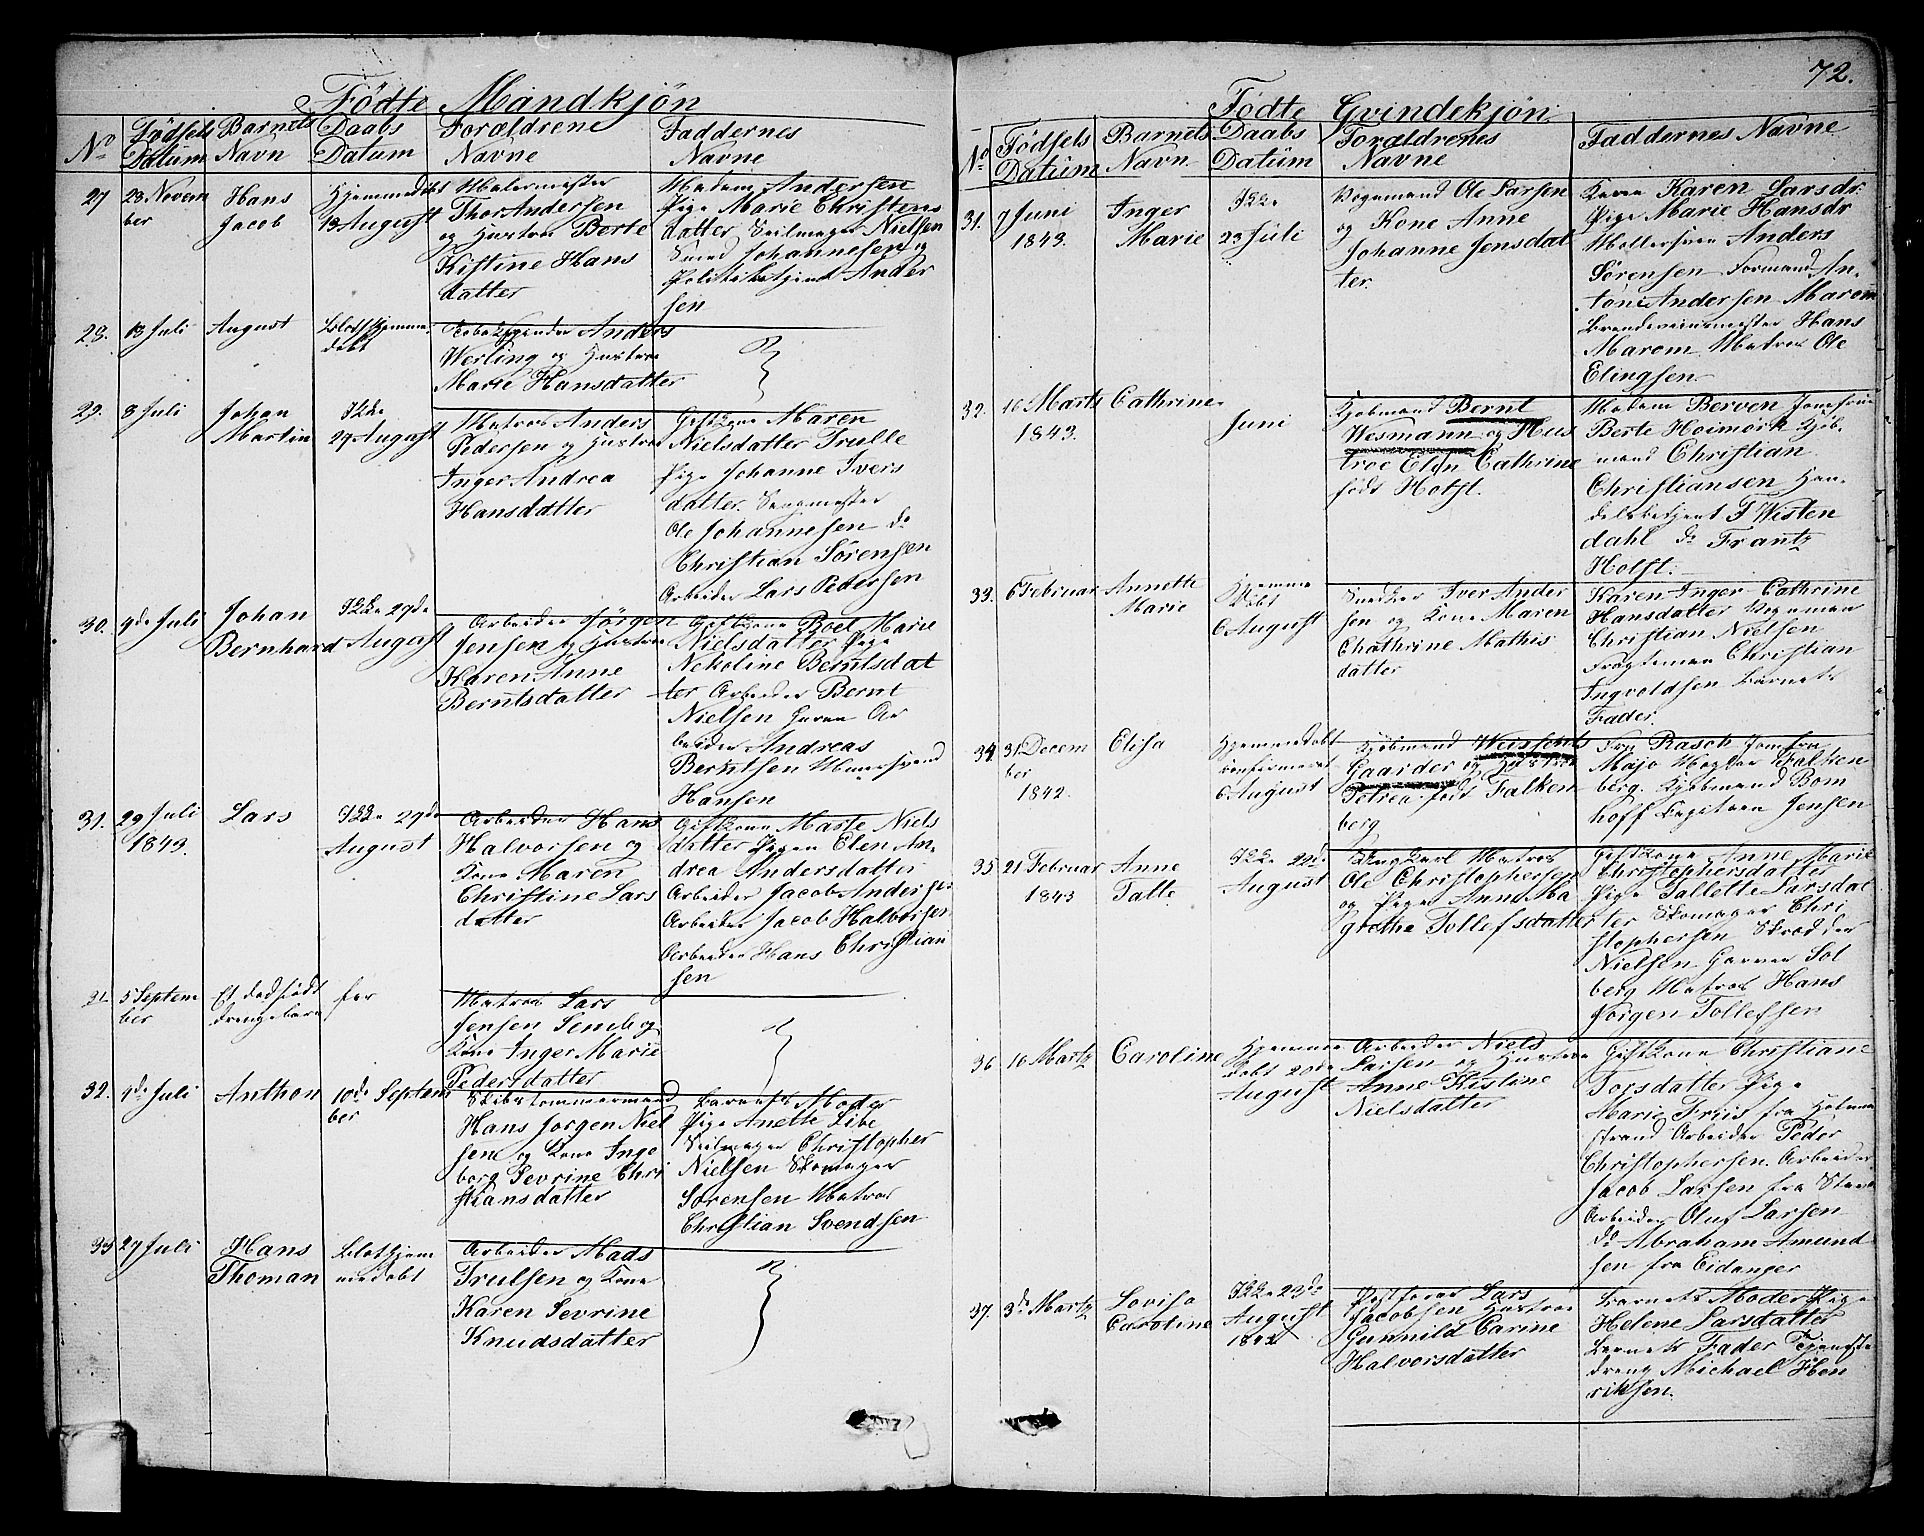 Födte Mandkjön
No Födsels Datum Barnets Navn Daabs Datum Forældrene Navne Faddernes Navne
27 28 Novem
ber
Hans
Jacob
Hjemmedöbt
13 August
Malermester
Thor Andersen
og Hustroe Berte
Kistine Hans
datter
Madam Andersen
Pige Marie Christens
datter Seilmager Nielsen
Smed Johannesen og
Politibetjent Ander
sen
28. 13 Juli August Blot hjemme
döbt
Anders
Werling og Hustroe
Marie Hansdatter
29. 8 Juli Johan
Martin
Ikke
29 August
Matros Anders
Pedersen og Hustroe
Inger Andrea
Hansdatter
Giftkone Maren
Nielsdatter Trulle
Pige Johanne Ivers
datter
Ole Johannesen do
Christian Sörensen
Arbeider Lars Pedersen
30. 9de Juli Johan
Bernhard
Ikke 29de
August
Arbeider Jörgen
Jensen og Hustroe
Karen Anne
Berntsdatter
Giftkone Boel Marie
Nielsdatter Pige
Nekoline Berntsdat
ter Arbeider Bernt
Nielsen Ar
beider Andreas
Berntsen Muursvend
Hansen
31. 29 Juli
1843.
Lars Ikke 29de
August
Arbeider Hans
Halvorsen og
Kone Maren
Christine Lars
datter
Giftkone Marte Niels
datter Pigen Elen An,
drea Andersdatter
Arbeider Jacob Andersen
Arbeider Jacob Halvorsen
Arbeider Hans Christian
sen
31. 5 Septem
ber
Et dödfödt
Drengebarn
Matros Lars
Jensen og
Kone Inger Marie
Pedersdatter
32. 9de Juli Anthon 10de Septem
ber
Skibstömmermand
Hans Jorgen Niel
sen og Kone Inge
borg Sevrine Chri
stiansdatter
Barnets Moder
Pige Anette Libe
Seilmager Christopher
Nielsen Skomager
Sorensen Matros
Christian Svendsen
33 27 Juli Hans
Thoman
Blot hjem
medöbt
Arbeider Mads
Trulsen og Kone
Karen Sevrine
Knudsdatter
72.
Födte Qvindekjön
No Födsels Datum Barnets Navn Daabs Datum Forældrenes Navne Faddernes Navne
31. 7 Juni
1843.
Inger
Marie
Ikke
23 Juli
Vognmand Ole Larsen
og Kone Anne
Johanne Jensdat
ter.
Karen Larsdr
Pige Marie Hansdr
Anders
Sörensen Formand An,
tone Andersen Marom
Brændeviinsmester Hans
Marom Matros Ole
Elingsen
32. 16 Marts
1843.
Cathrine
Juni
Kjöbmand Bernt
Wesmann og Hus
troe Elen Cathrine
födt Holst.
Madam Berven Jomfrue
Berte Hoimork Kjöb,
mand Christian
Christiansen Han,
delsbetjent F Wisten
dahl do Frantz
Holst.
33. 6 Februar Annette
Marie
Hjemme
döbt
6 August
Snedker Iver Ander
sen og Kone Maren
Chathrine Mathis
datter
Karen Inger Cathrine
Hansdatter
Christian Nielsen
Christian
Ingvoldsen Barnets
Fader.
34. 31 Decem
ber
1842.
Elisa Hjemmedöbt
confirmeret
6 August
Kjöbmand
Gaarder og Hustroe
Petrea födt Falken
berg
Fru Rasch Jomfru
Maja Falken
berg. Kjöbmand Bom
hoff Capitain Jensen
35 21 Februar
1843
Anne
Talte
Ikke 20de
August
Ungkarl Matros
Ole Christophersen
og Pige Anne Ma
grethe Tollefsdatter
Giftkone Anne Marie
Christophersdatter
Pige Tallette Larsdat
ter Skomager Chri
stophersen Skrædder
Nielsen Garver Sol
berg Matros Hans
Jorgen Tollefsen
36 16 Martz Caroline Hjemme
döbt 20de
August
Arbeider Niels
Larsen og Hustroe
Anne Kistine
Nielsdatter
Giftkone Christiane
Torsdatter Pige
Marie Friis fra Holme
strand Arbeider Peder
Christophersen. Arbeider
Jacob Larsen fra
Arbeider Oluf Larsen
do Abraham Amund
sen fra Eidanger
37. 3de Martz Lovisa
Carotine
Ikke 23de
August
1842
Lars
Jacobsen Hustroe
Gunnild Carine
Halvorsdatter
Barnets Moder Pige
Helene Larsdatter
Barnets Fader Tjeneste
dreng Michael Hen
riksen.